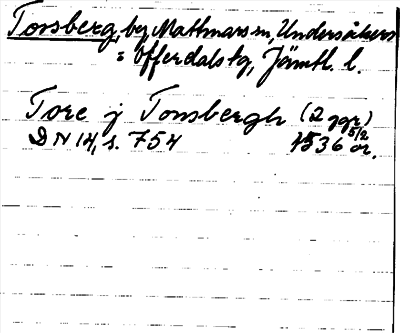 Torsberg, by, Mattmars sn, Undersåkers
= Offerdals tg, Jämtl. l.
Tore j Tonsbergh (2 ggr)
DN 14, s. 754 1536 5/2 or.